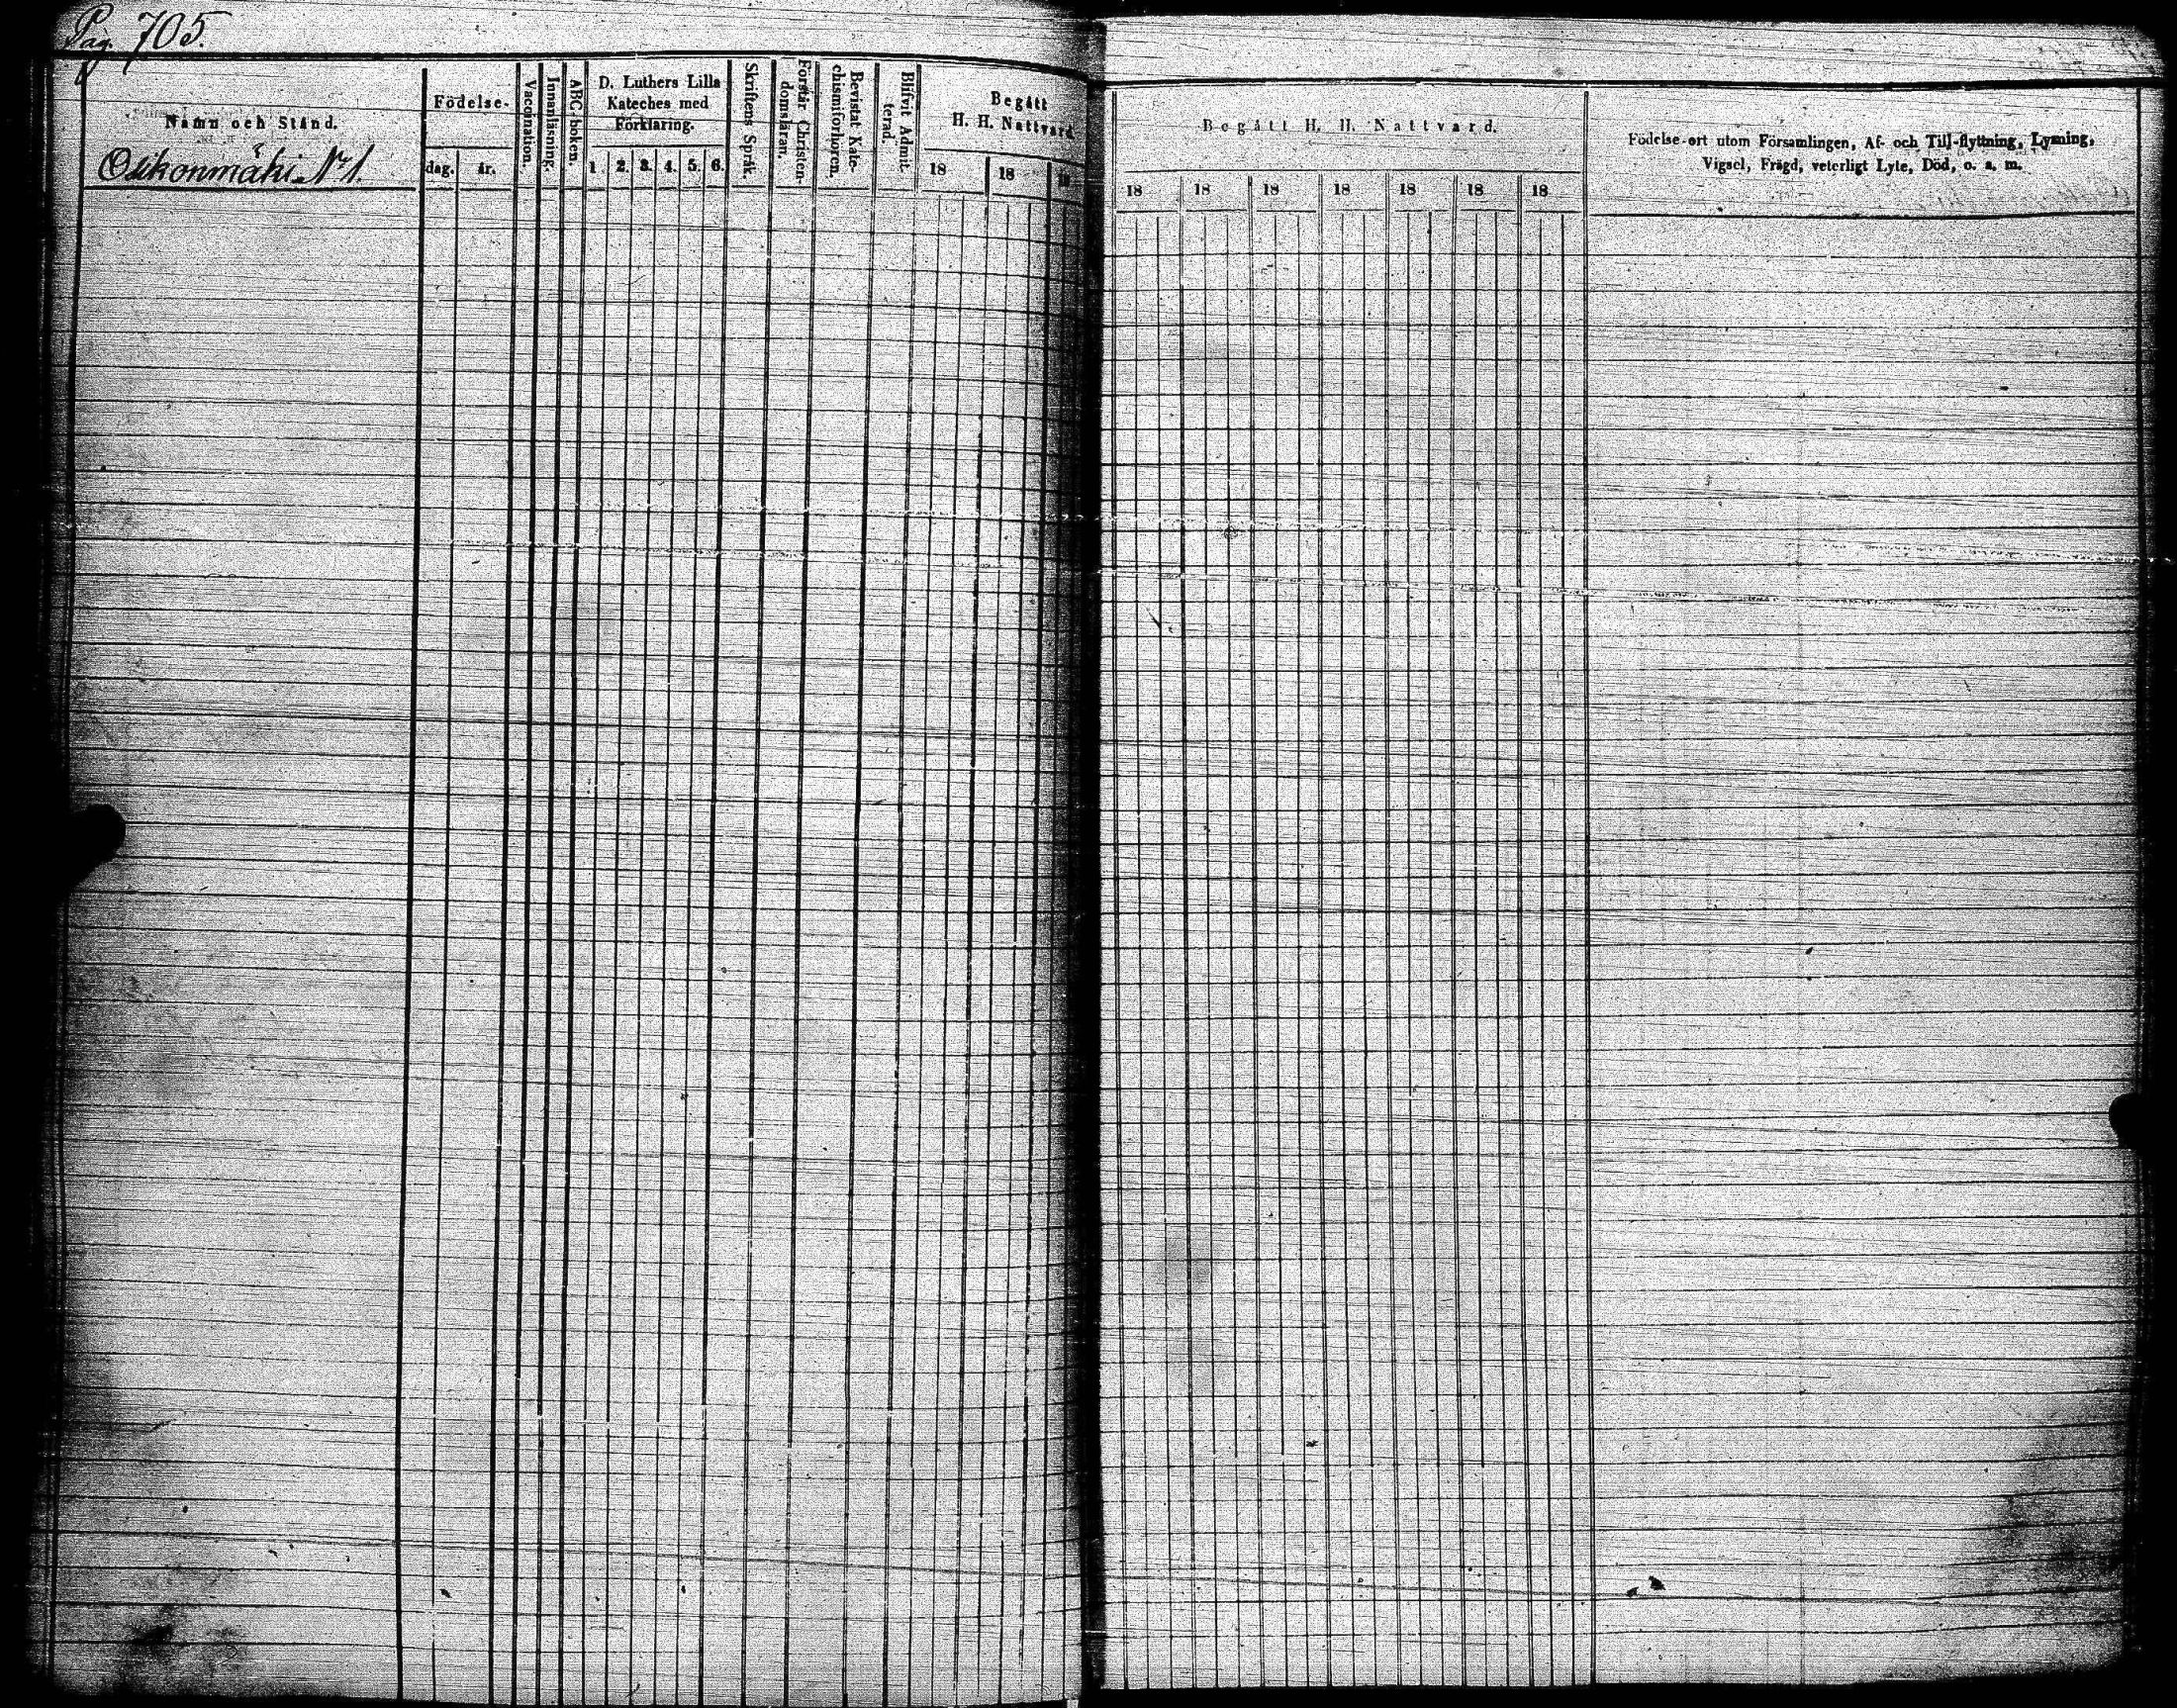 Pag. 705.
Namn och Stånd.
Oikonmäki N:r 1.
Födelse-
dag.
år.
Vaccination.
Innanläsning.
ABC-boken.
D. Luthers Lilla
Kateches med
Förklaring.
1 2. 3. 4. 5. 6.
Skriftens Språk.
Förstår Christen-
domsläran.
Bevistat Kate-
chismiförhören.
Blifvit Admit-
terad.
Begått
H. H. Nattvard.
18 18 18
Begått H. H. Nattvard.
18 18 18 18 18 18 18
Födelse-ort utom Församlingen, Af- och Till-flyttning, Lysning,
Vigsel, Frägd, veterligt Lyte, Död, o. a. m.